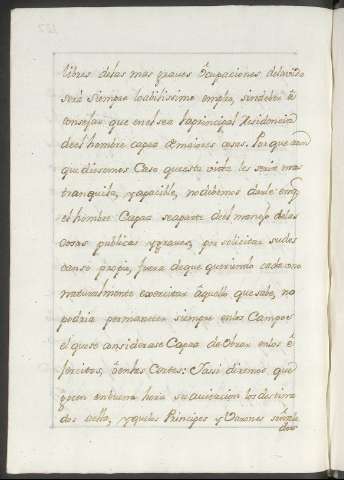 libres delas mas graves Ocupaciones de la vida
será siempre loabilissimo empleo, sin deber
consejar que en el sea la principal Residencia
del hombre capaz de maiores cosas. Porque aun
que diesemos Caso que esta vida les seria mas
tranquila, y apacible, no debemos dezir
el hombre Capaz se aparte del manejo delas
cosas publicas y graves, por solicitar su des
canso propio, fuera de que queriendo cada uno
naturalmente exercitar aquello que sabe, no
podria permanecer siempre en los Campos
el que se considerase Capaz de Obrar en los e
xercitos, ò en las Cortes: I assi diremos que
gozen en buena hora su aucion los destina
dos à ella, y que los Principes y Varones